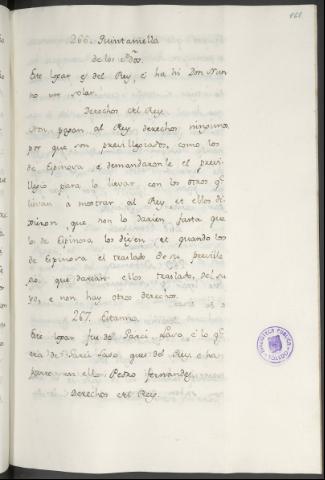 161
266. Quintaniella
de los
Este logar es del Rey, e ha hi Don Nun
no un solar.
Derechos del Rey.
Non pagan al Rey derechos ningunos
por que son previllegiados, como los
de Espinosa, e demandaronle el previ
llejio para lo lievar con los otros q̃
lievan a mostrar al Rey, et ellos di-
xieron, que non lo darien, fasta que
lo de Espinosa los diesen, et quando los
de Espinosa el traslado de su preville
jio, que darian ellos traslado, del su
yo, e non hay otros derechos.
267. Estanno
Este logar fue de Garci Laso, e lo q̃
era de Garci Laso, que es del Rey, e ha
parte en ello Pedro fernandez
Derechos del Rey.
BIBLIOTECA PUBLICA
TOLEDO